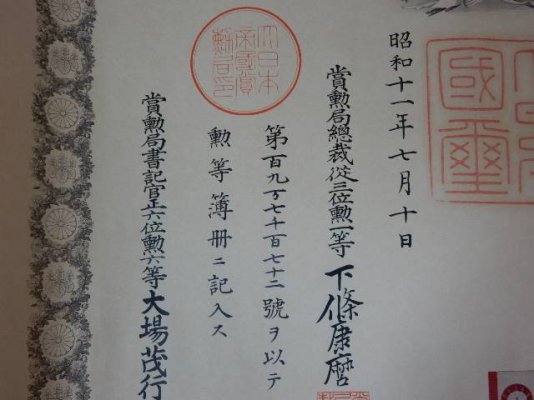 昭和十一年七月十日
賞勲局總裁從三位勲一等下條康麿
第百九万七千百七十二號ヲ以テ
勲等簿冊ニ記入ス
賞勲局書記官正六位勲六等大場茂行
國璽
大日本帝國賞勲局印